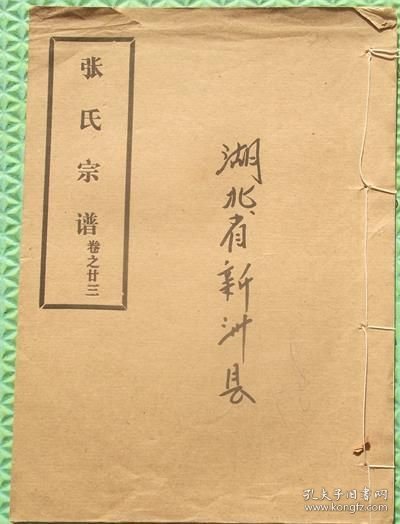 张氏宗谱 卷之廿三
湖北省新洲县
孔夫子旧书网
www.kongfz.com